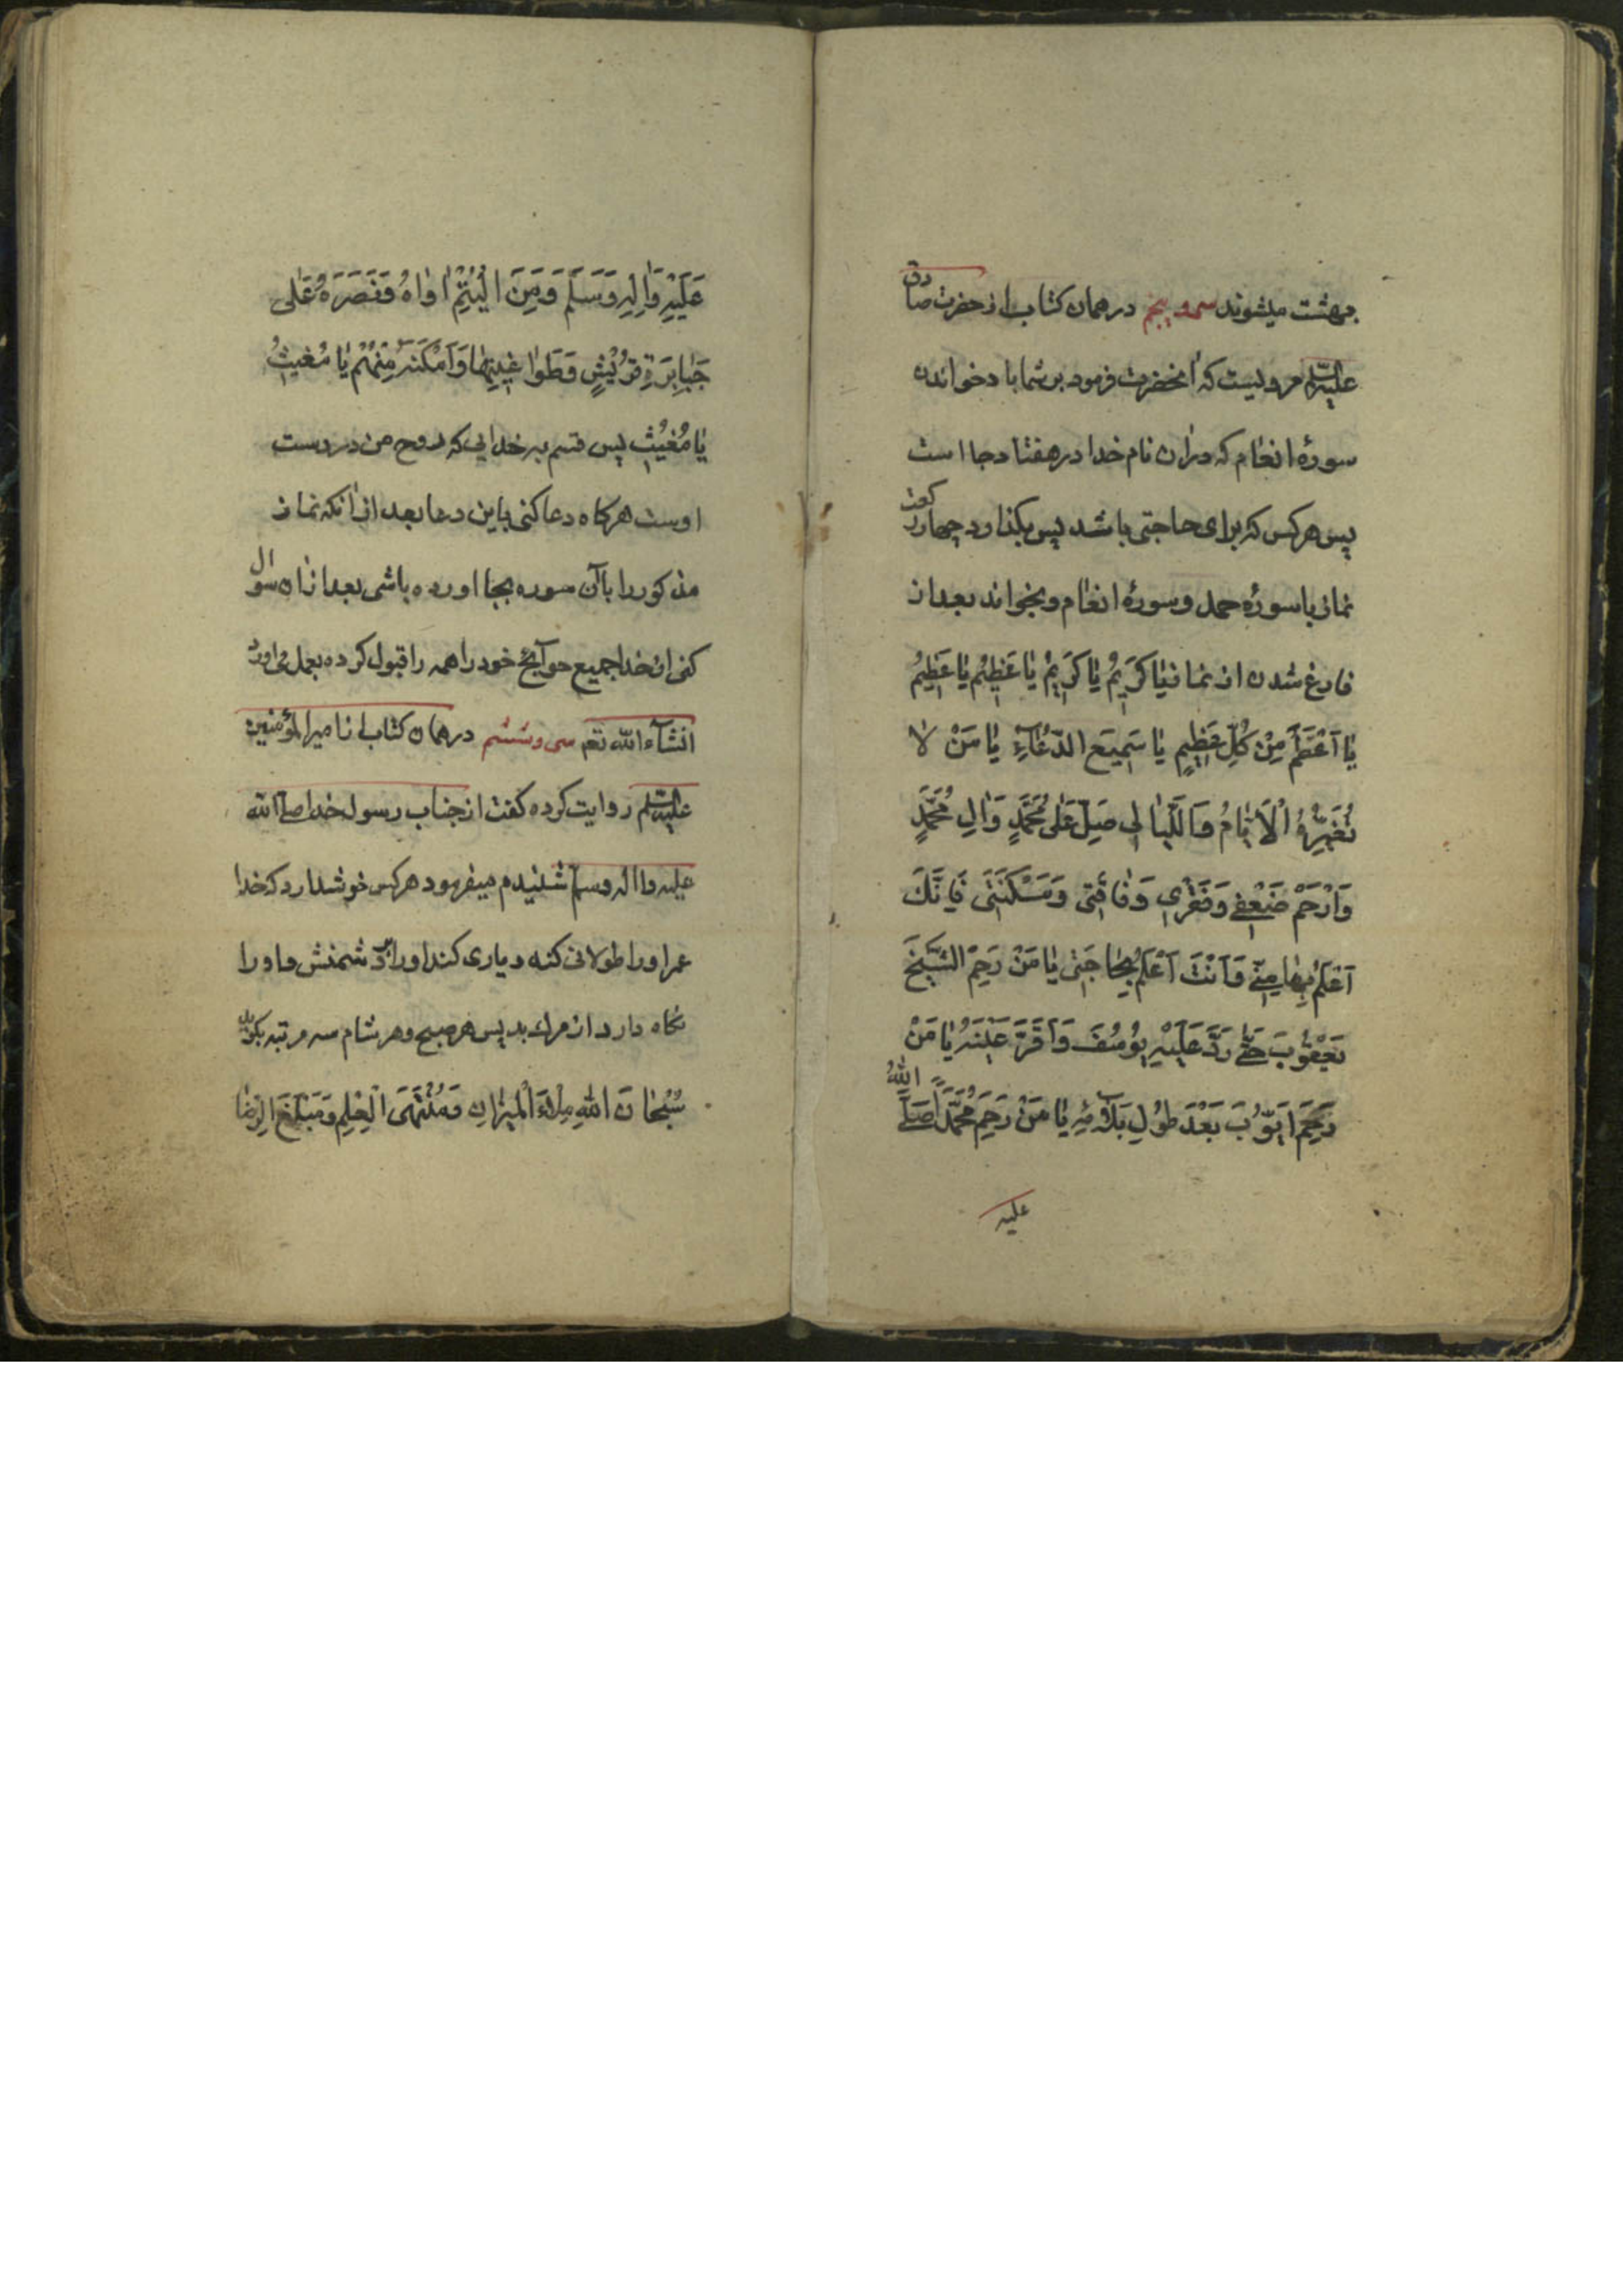 بهشت میشوند سی و پنجم در همان کتاب از حضرت صادق
علیه السلام مرویست که آنحضرت فرمود بر شما باد خواندن
سورهٔ انعام که در آن نام خدا در هفتاد جا است
پس هر کس که برای حاجتی باشد پس بگذارد چهار رکعت
نماز با سورهٔ حمد و سورهٔ انعام و بخواند بعد از
فارغ شدن از نماز یٰا کَرِیمُ یٰا کَرِیمُ یٰا عَظِیمُ یٰا عَظِیمُ
یٰا اَعْظَمَ مِنْ کُلِّ عَظِیمٍ یٰا سَمِیعَ الدُّعٰآءِ یٰا مَنْ لٰا
تُغَیِّرُهُ الْاَیّٰامُ وَ اللَّیٰالِی صَلِّ عَلٰی مُحَمَّدٍ وَ اٰلِ مُحَمَّدٍ
وَ ارْحَمْ ضَعْفِی وَ فَقْرِی وَ فٰاقَتِی وَ مَسْکَنَتِی فَاِنَّکَ
اَعْلَمُ بِهٰا مِنِّی وَ اَنْتَ اَعْلَمُ بِحٰاجَتِی یٰا مَنْ رَحِمَ الشَّیْخَ
یَعْقُوبَ حَتّٰی رَدَّ عَلَیْهِ یُوسُفَ وَ اَقَرَّ عَیْنَهُ یٰا مَنْ
رَحِمَ اَیُّوبَ بَعْدَ طُولِ بَلٰآئِهِ یٰا مَنْ رَحِمَ مُحَمَّدًا صَلَّی اللّٰهُ
علیه
عَلَیْهِ وَ اٰلِهِ وَ سَلَّمَ وَ مِنَ الْیُتْمِ اٰوٰاهُ وَ نَصَرَهُ عَلٰی
جَبٰابِرَةِ قُرَیْشٍ وَ طَوٰاغِیتِهٰا وَ اَمْکَنَهُ مِنْهُمْ یٰا مُغِیثُ
یٰا مُغِیثُ پس قسم به خدایی که روح من در دست
اوست هرگاه دعا کنی باین دعا بعد از آنکه نماز
مذکور را با آن سوره بجا اورده باشی بعد از آن سوال
کنی از خدا جمیع حوآیج خود را همه را قبول کرده بعمل می اورد
انشآء الله تعم سی و ششم در همان کتاب از امیر المؤمنین
علیه السلام روایت کرده گفت از جناب رسول خدا صلی الله
علیه و اله و سلم شنیدم میفرمود هر کس خوش دارد که خدا
عمر او را طولانی کند و یاری کند او را بر دشمنش و او را
نگاه دارد از مرك بد پس هر صبح و هر شام سه مرتبه بگوید
سُبْحٰانَ اللّٰهِ مِلْأَ الْمِیزٰانِ وَ مُنْتَهَی الْعِلْمِ وَ مَبْلَغَ الرِّضٰا